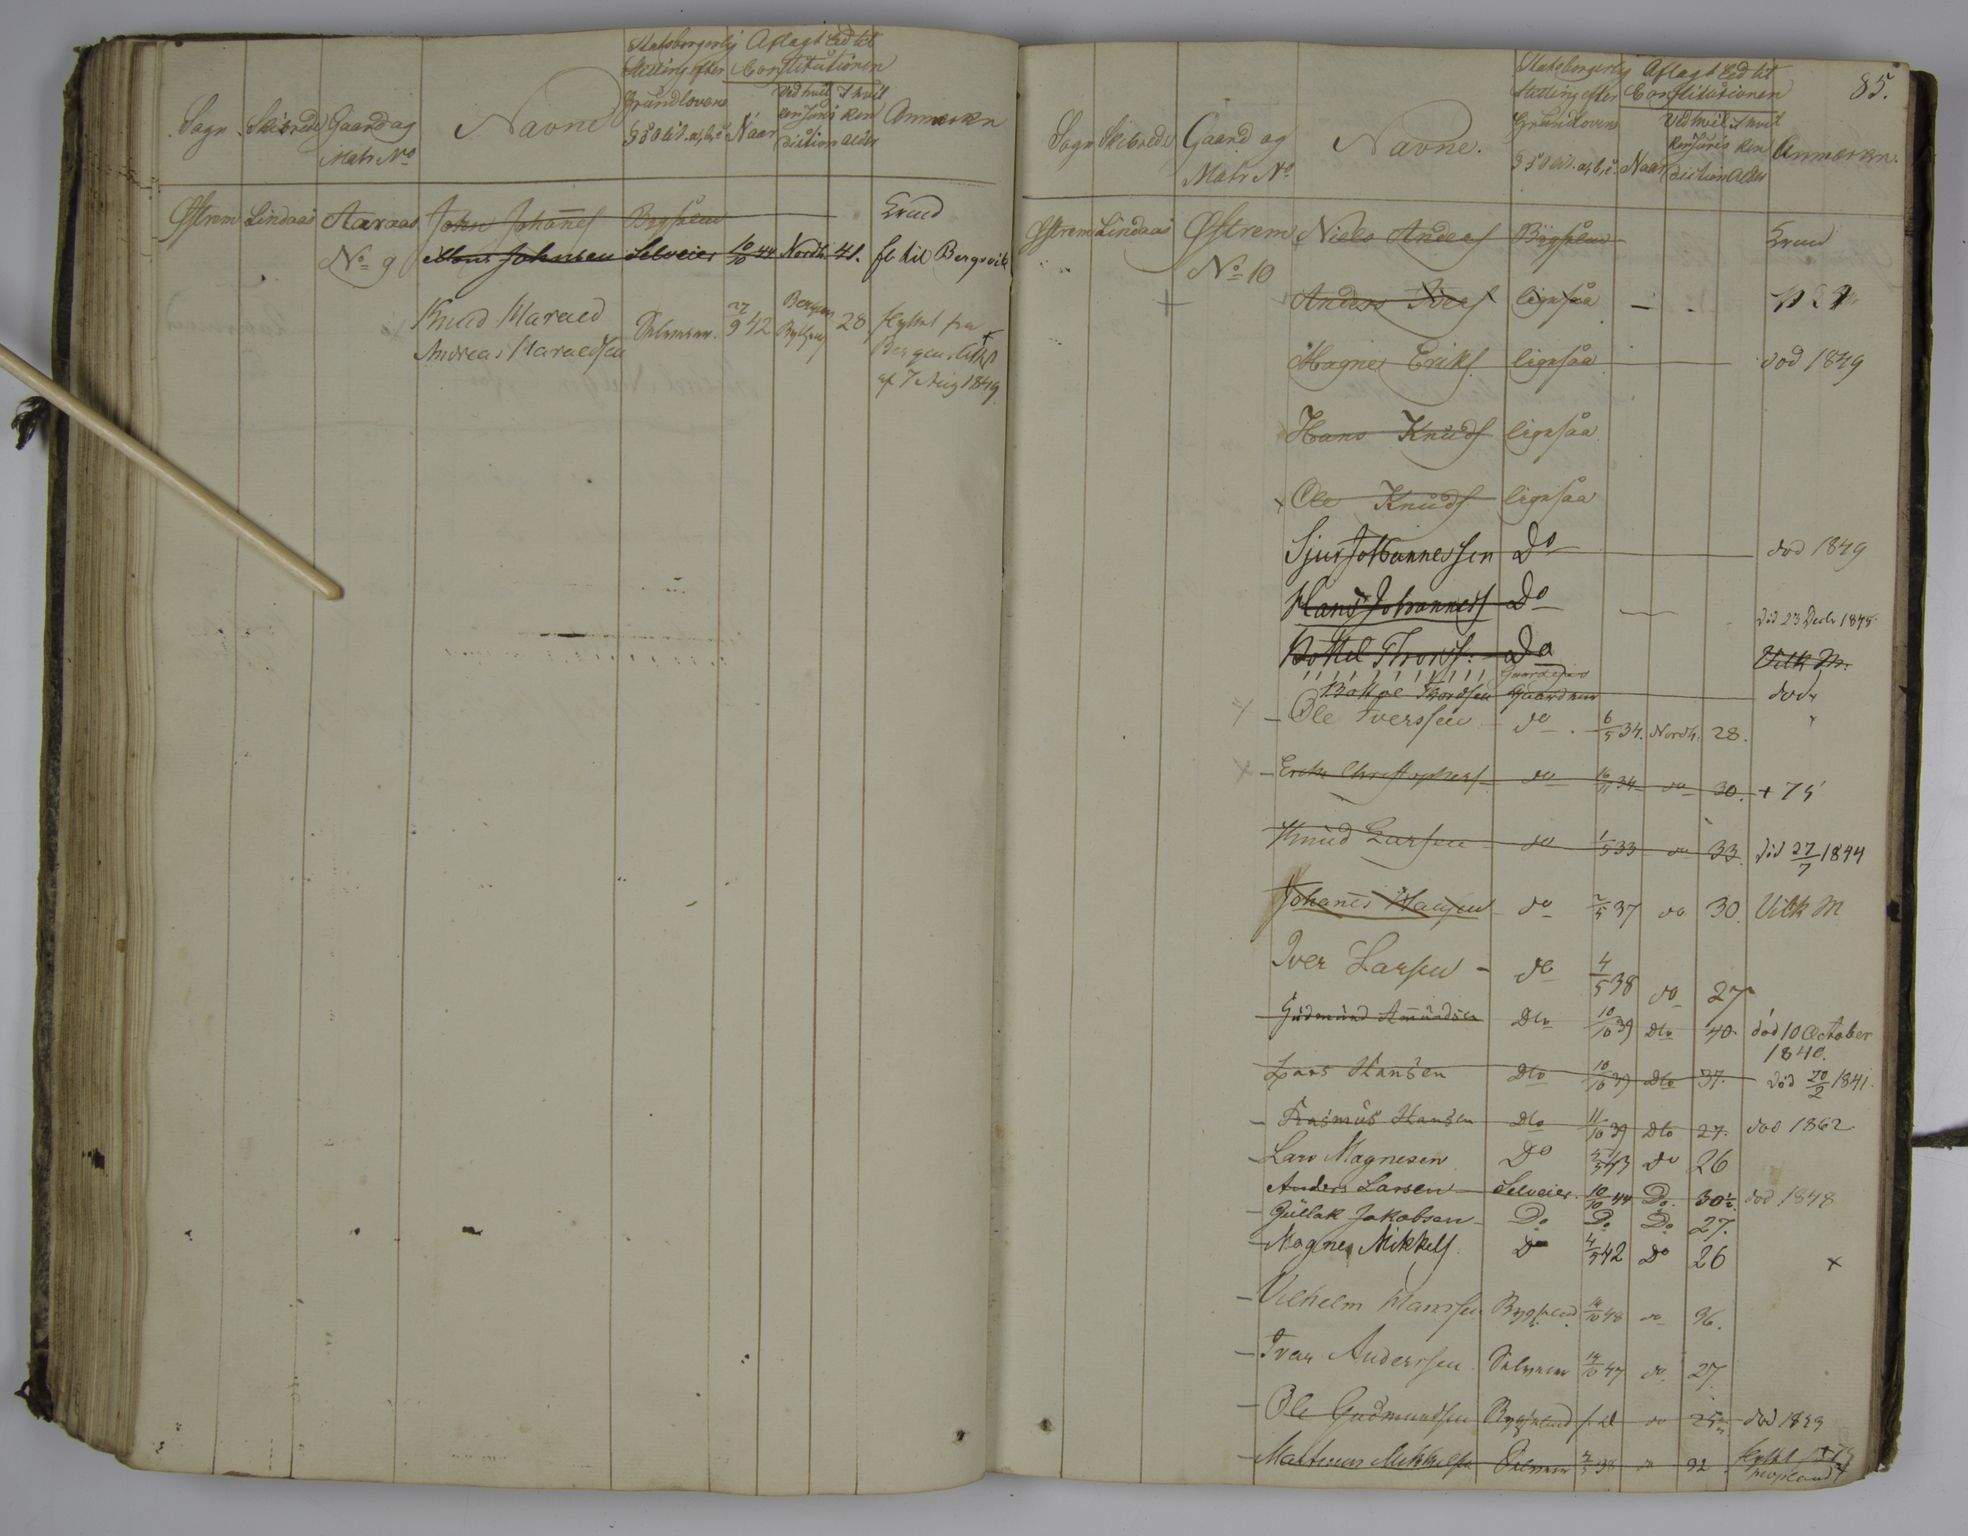 Sogn Skibrede Gaard og Matr No Navne Statsborgerlig Stilling efter Grundlovens § 50 Lit. a, b, c Aflagt Eed til Constitutionen Naar Ved hvilken Jurisdiction I hvilken Alder Anmærkn
Østrem Lindaas Aaraas John Johannes Bygselm Svud
No 9 Mons Johnsen Selveier 10/10 44 Nordh 41. fl til Bergsvik
Knud Harald Selveier 27/9 42 Bergens 28 flyttet fra
Andreas Haraldsen Bergens
af 7 Aug 1849
85.
Sogn Skibrede Gaard og Matr No Navne. Statsborgerlig Stilling efter Grundlovens § 50 Lit. a, b, c. Aflagt Eed til Constitutionen Naar Ved hvilken Jurisdiction I hvilken Alder Anmærkn.
Østrem Lindaas Østrem Niels Anders Bygselm
No 10
Anders Iver ligesaa
Magne Eriks. ligesaa død 1849
Hans Knuds ligesaa
Ole Knuds ligesaa
Sjur Johannessen Do død 1849
Hans Johannes Do død 23 Decbr 1845
Bottel Thors. Do Vilk M.
Bottel Thordsen Gaardmr død
Ole Iversen do 6/5 34. Nordh. 28.
Erik Christophers do 16/11 34 do 30. + 75
Knud Larsen do 1/5 33 do 33. død 27/7 1844
Johanes Hansen do 2/5 37 do 30 Vilk M
Iver Larsen do 4/5 38 do 27
Gudmund Amundsen Dto 10/10 39 Dto 40. død 10 October 1840.
Lars Hansen Dto 10/10 39 Dto 37. død 20/2 1841.
Rasmus Hansen Dto 11/10 39 Dto 27. død 1862
Lars Magnesen Do 43 Do 26
Anders Larsen Selveier. 10/10 44 Do. 30½. død 1848
Gullak Jakobsen Do Do Do 27.
Magne Mikkels. Do 4/5 42 Do 26
Vilhelm Hanssen Bygselmd 14/10 48 do 36.
Ivar Anderssen Selveier 14/10 47 do 27
Ole Gudmundsen Bygselmd s. d do 25 død 1853
Mathias Mikkelsen Selveier 2/5 38 do 32 flyttet